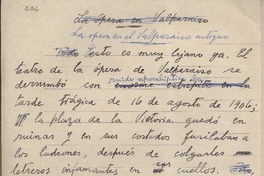 232
La ópera en Valparaíso
La opera en el Valparaiso antiguo
Todo Esto es muy lejano ya. El
teatro de la ópera de Valparaiso se
ruido apocalíptico
derrumbó con enorme estrépito en la
tarde trágica de 16 de agosto de 1906;
la plaza de la Victoria quedó en
ruinas y en sus costados fusilaban a
los ladrones, después de colgarles
letreros infamantes en cuellos.